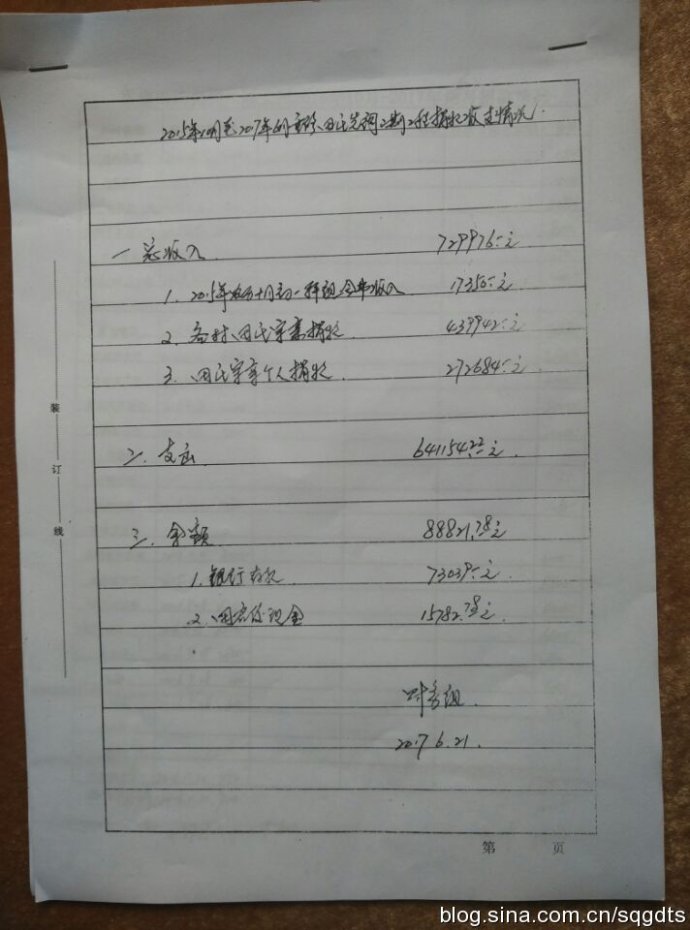 2015年10月至2017年6月 田氏宗祠二期工程捐款收支情况
一 总收入 729976.-元
1. 2015年农历十月初一 祭祖 余款收入 17350.-元
2. 各村田氏宗亲捐款 439942.-元
3. 田氏宗亲个人捐款 272684.-元
二. 支出 641154.22元
三. 余额 88821.78元
1. 银行存款 73039.-元
2. 田 现金 15782.78元
财务组
2017.6.21.
装
订
线
第 页
blog.sina.com.cn/sqgdts